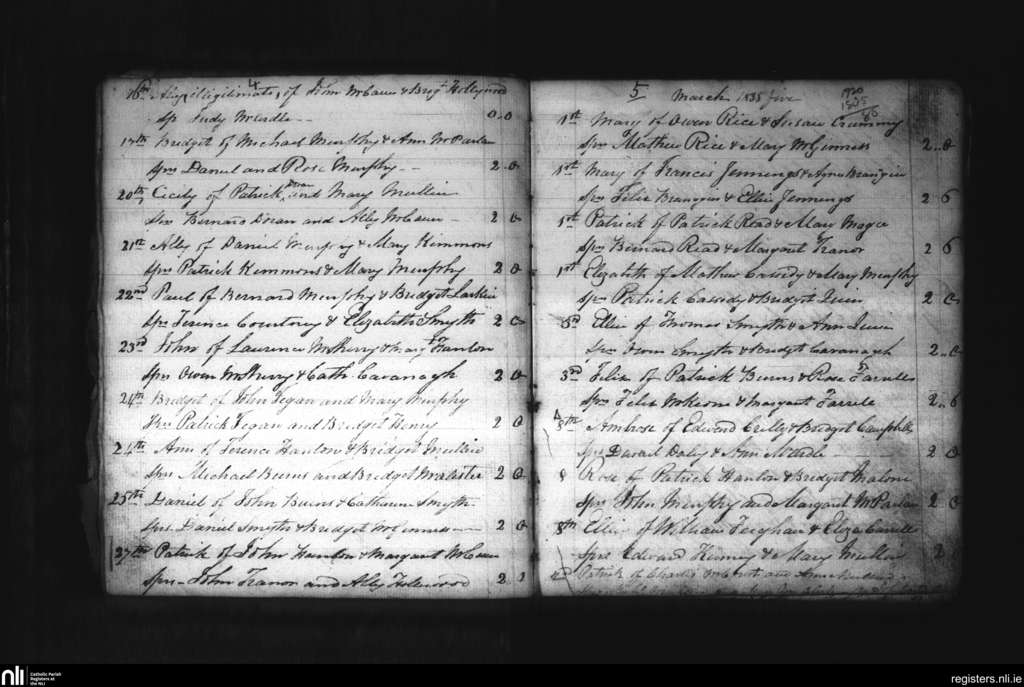 4
16th Ally, illegitimate, of John McCann & Bridgt Hollywood
Sp Judy McArdle -- 0..0
17th Bridget of Michael Murphy & Ann McParlan
Sprs Daniel and Rose Murphy -- 2 0
20th Cicily of Patrick Doran and Mary Mullin
Sprs Bernard Doran and Ally McCann - 2 0
21st Ally of Daniel Murphy & Mary Kimmons
Sprs Patrick Kimmons & Mary Murphy 2 0
22nd Paul of Bernard Murphy & Bridget Larkin
Sprs Terence Courtney & Elizabeth Smyth 2 0
23rd John of Laurence McSherry & Margt Hanlon
Sprs Owen McSherry & Cath Cavanagh 2 0
24th Bridget of John Fegan and Mary Murphy
Sprs Patrick Fegan and Bridget Henry 2 0
24th Ann of Terence Hanlon & Bridget Mullin
Sprs Michael Burns and Bridget McAlister 2 0
25th Daniel of John Burns & Catharine Smyth
Sprs Daniel Smyth & Bridget McGinnis 2 0
27th Patrick of John Hanlon & Margaret McCann
Sprs John Tranor and Ally Hollywood 2 1
5
March 1835 five
1st Mary of Owen Rice & Susan Crummy
Sprs Mathew Rice & Mary McGinness 2..0
1st Mary of Francis Jennings & Anne Branigan
Sprs Felix Branigan & Ellin Jennings 2 6
1st Patrick of Patrick Read & Mary Magee
Sprs Bernard Read & Margaret Tranor 2 6
1st Elizabeth of Mathew Cassidy & Mary Murphy
Sprs Patrick Cassidy & Bridget Quin 2 0
3rd Ellin of Thomas Smyth & Ann
Sprs Owen Smyth & Bridget Cavanagh 2..0
3rd Felix of Patrick Burns & Rose Farrell
Sprs Felix McKeone & Margaret Farrell 2..6
5th Ambrose of Edward Crilly & Bridget Campbell
Sprs Daniel Daly & Ann McArdle 2 0
8 Rose of Patrick Hanlon & Bridget Malone
Sprs John Murphy and Margaret McParlan 2 0
8th Ellin of William Feighan & Eliza
Sprs Edward Kinney & Mary Mullin 2
Patrick of Charles and Anne
nli
Catholic Parish
Registers at
the NLI
registers.nli.ie